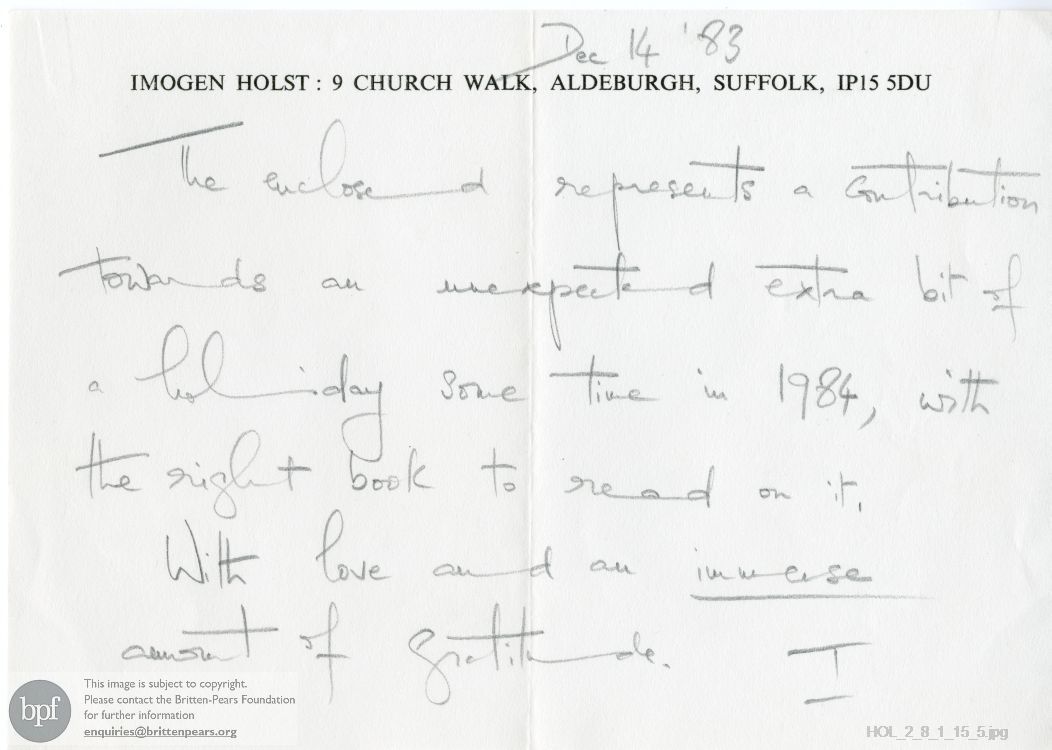 Dec 14 '83
IMOGEN HOLST : 9 CHURCH WALK, ALDEBURGH, SUFFOLK, IP15 5DU
The enclosed represents a contribution
towards an unexpected extra bit of
a holiday some time in 1984, with
the right book to read on it.
With love and an immense
amount of gratitude. I
bpf
This image is subject to copyright.
Please contact the Britten-Pears Foundation
for further information
enquiries@brittenpears.org
HOL_2_8_1_15_5.jpg